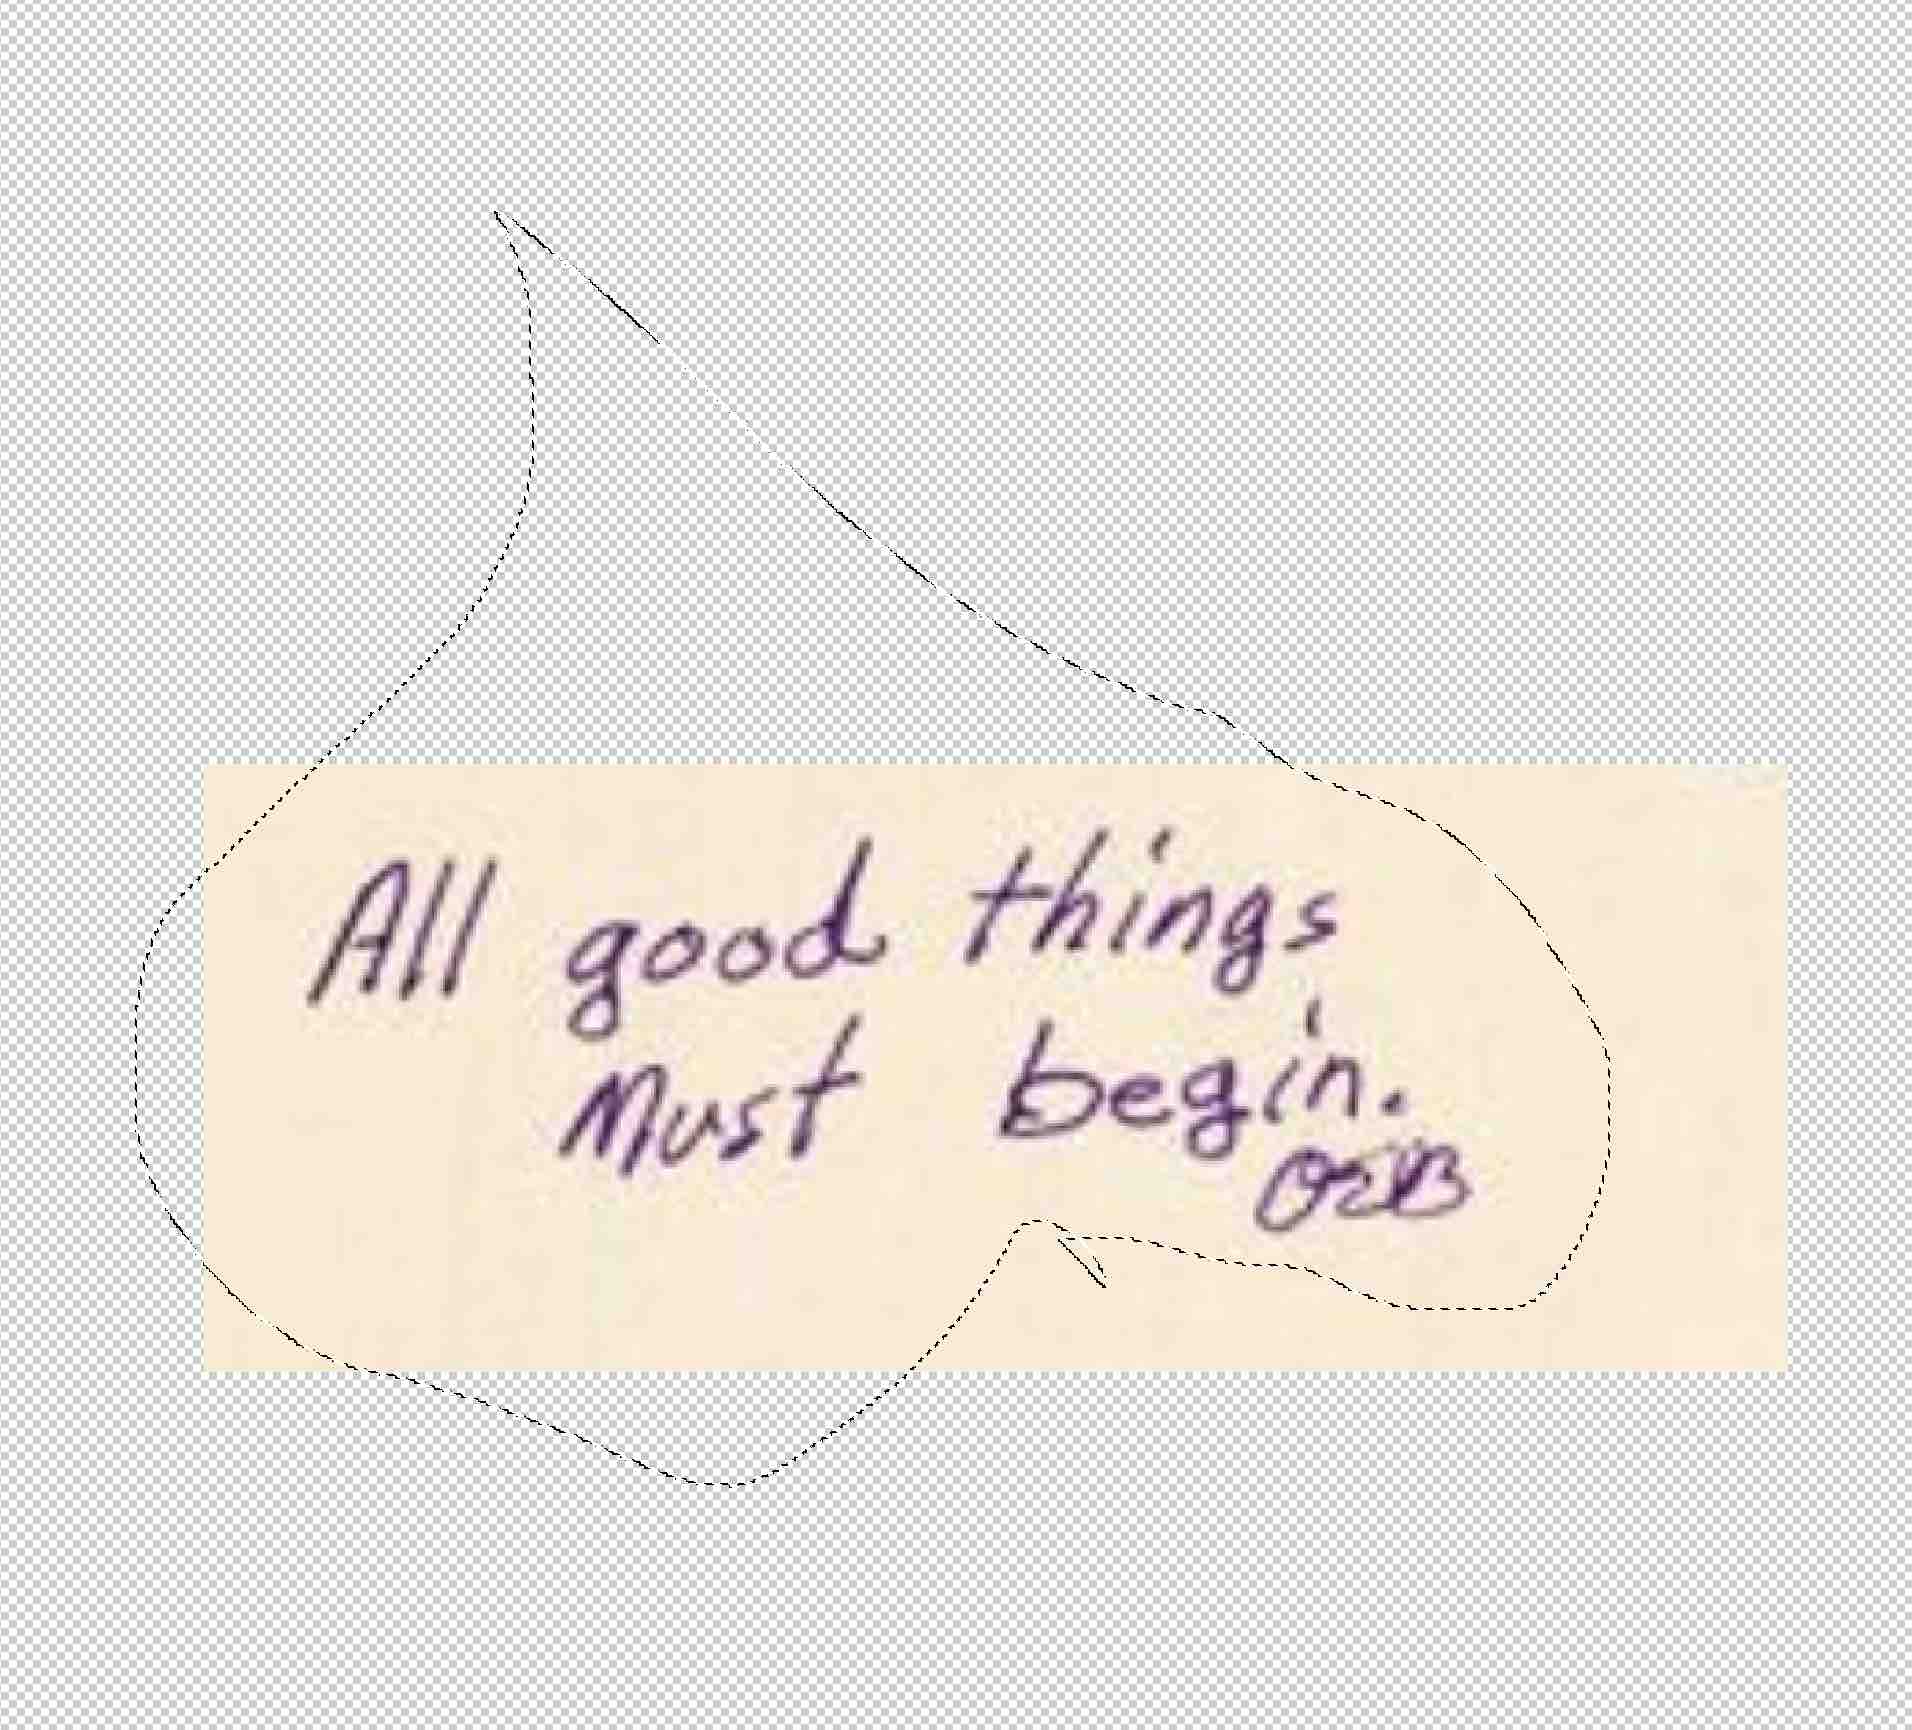 All good things
Must begin.
OEB